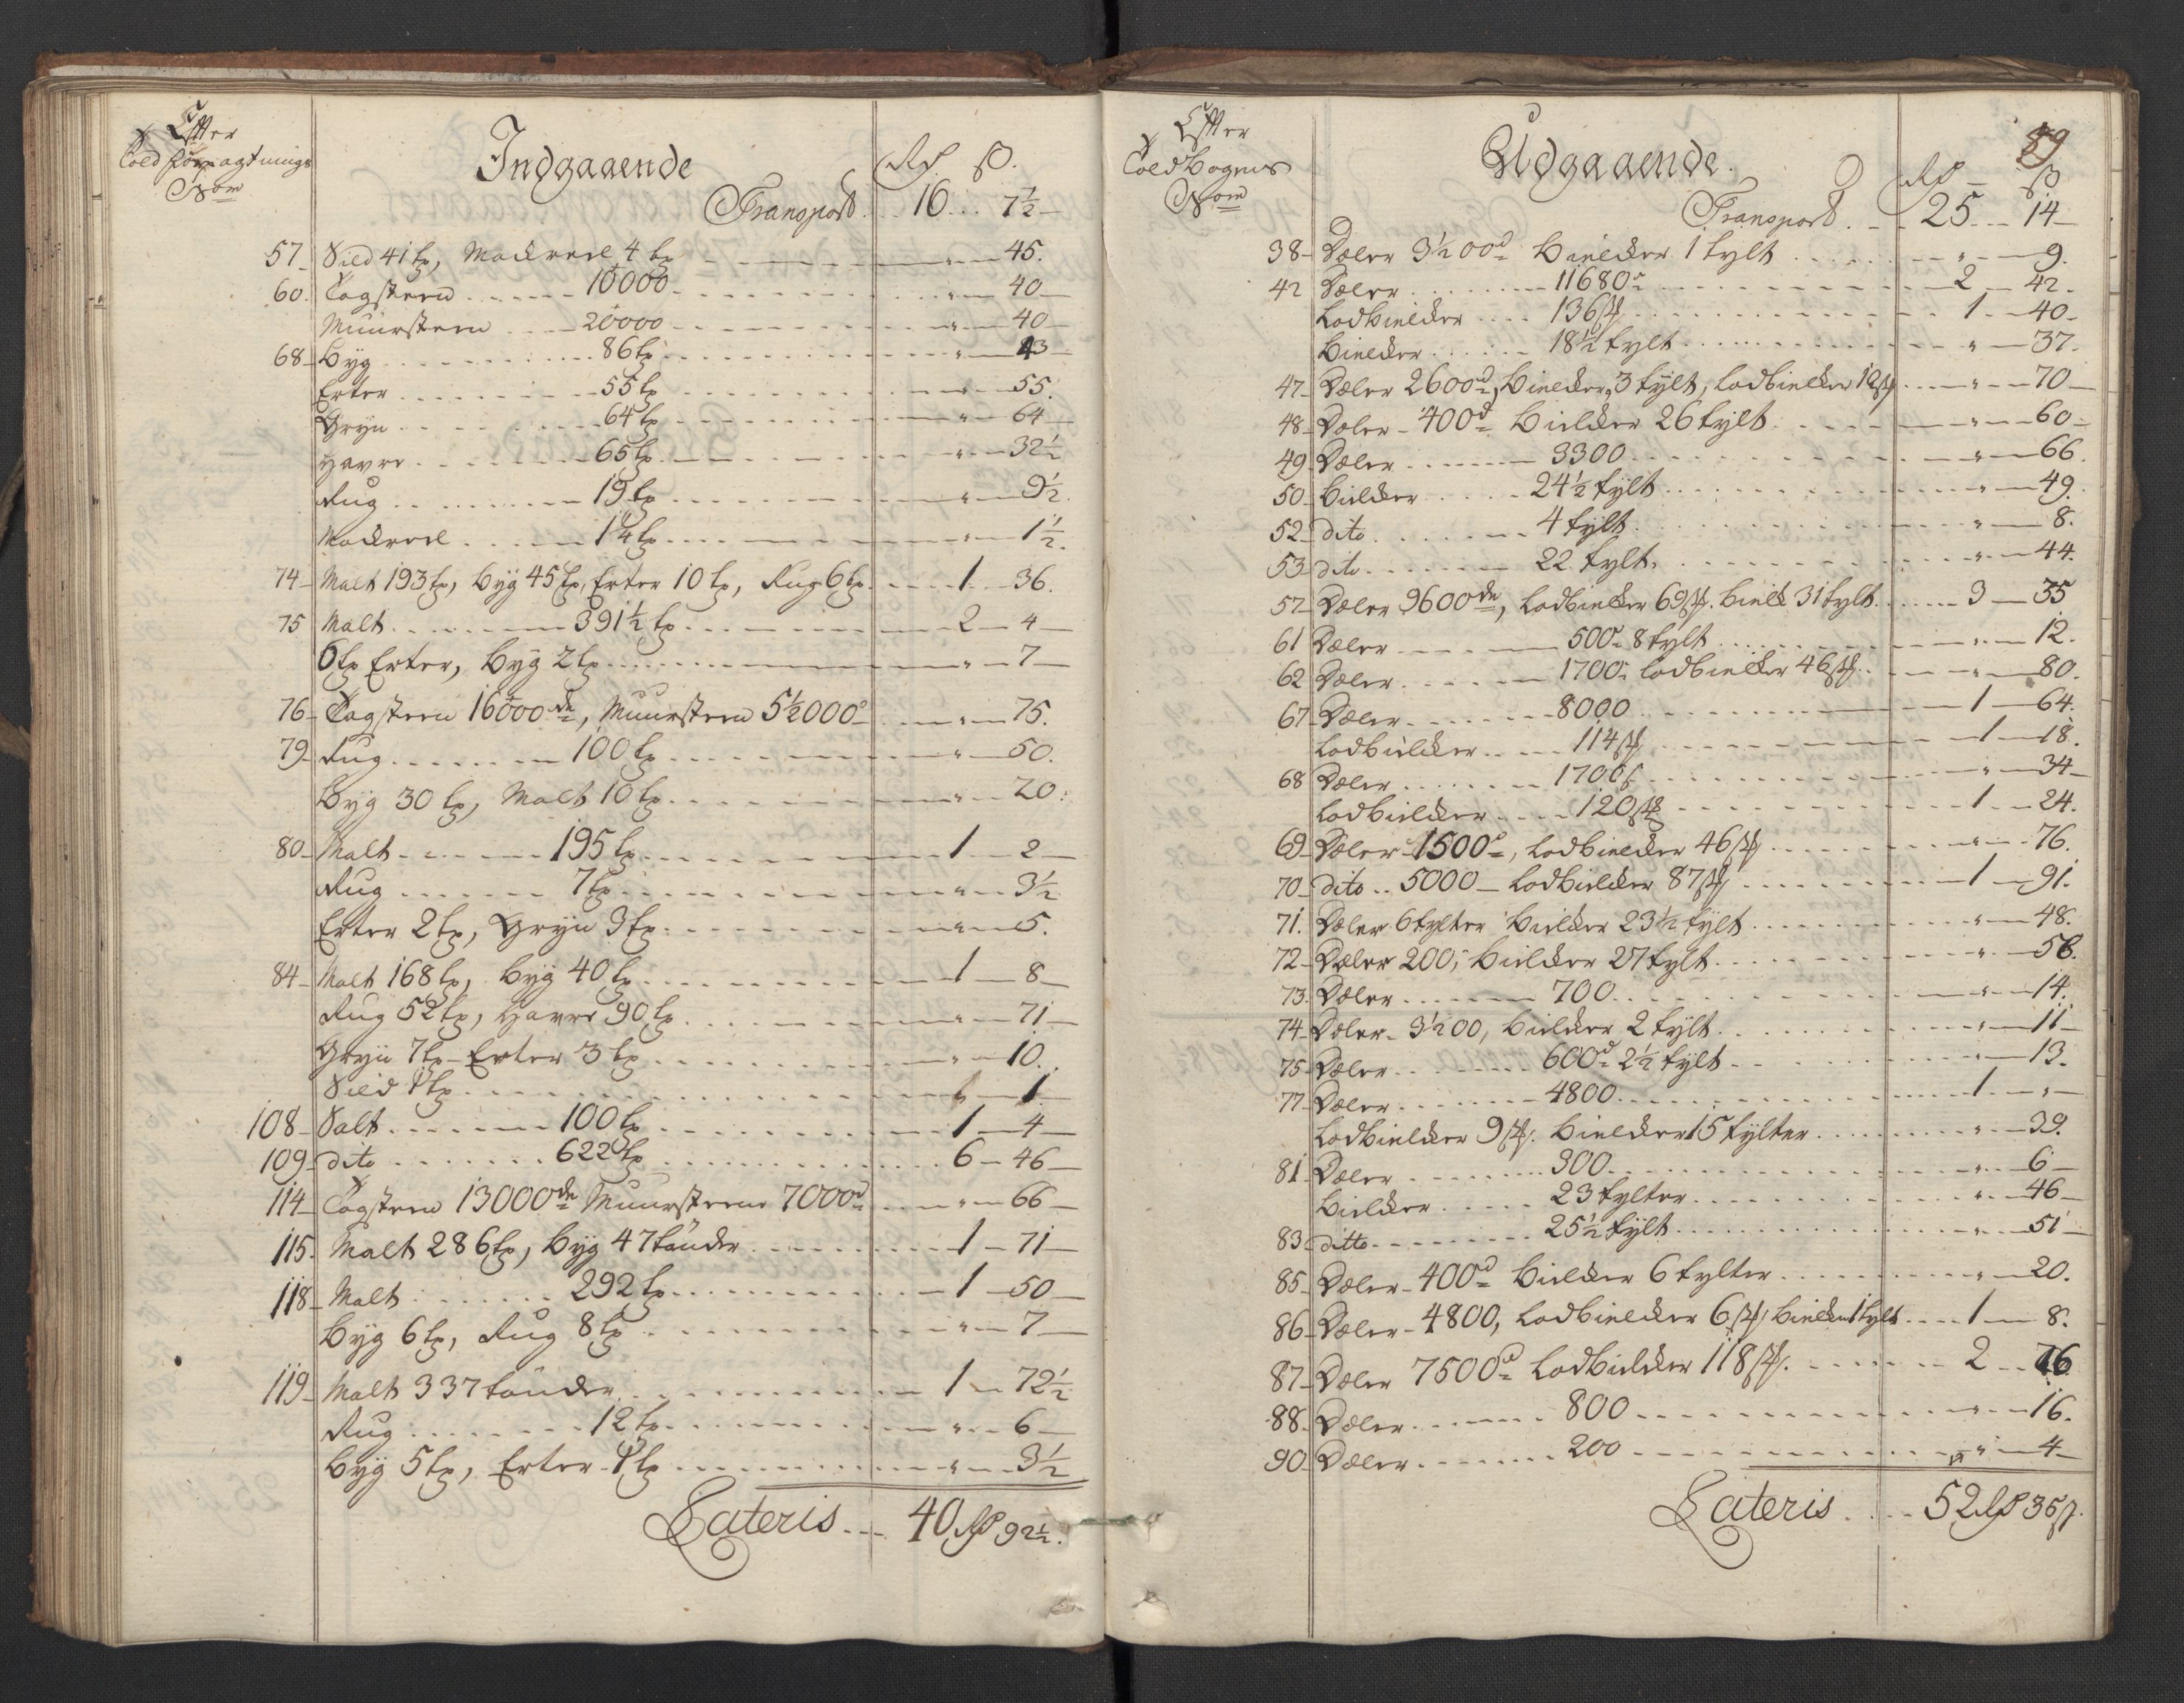 Efter
Told forpagtnings
No
Indgaaende
Rd. ß.
Transport 16 7½
57 Sild 41 tr, Mackreel 4 tr " 45.
60. Tagsteen 10000 " 40
Muursteen 20000 " 40
68 Byg 86 tr " 43
Erter 55 tr " 55.
Gryn 64 tr " 64
Havre 65 tr " 32½
Rug 19 tr " 9½
Mackreel 1¼ tr " 1½.
74 Malt 193 tr, Byg 45 tr, Erter 10 tr, Rug 6 tr 1 36.
75 Malt 391½ tr 2 4
6 tr Erter, Byg 2 tr " 7
76 Tagsteen 16000 de, Muursteen 5½000 d " 75.
79 Rug 100 tr " 50.
Byg 30 tr, Malt 10 tr " 20:
80 Malt 195 tr 1 2
Rug 7 tr " 3½
Erter 2 tr, Gryn 3 tr " 5.
84 Malt 168 tr, Byg 40 tr 1 8
Rug 52 tr, Havre 90 tr " 71
Gryn 7 tr Erter 3 tr " 10.
Sild 1 tr " 1
108 Salt 100 tr 1 4
109 dito 622 tr 6 46
114 Tagsteen 13000 de Muursteene 7000 d " 66
115. Malt 286 tr, Byg 47 tönder 1 71
118 Malt 292 tr 1 50
Byg 6 tr, Rug 8 tr " 7
119 Malt 337 tönder 1 72½
Rug 12 tr " 6
Byg 5 tr, Erter 1 tr " 3½
Lateris 40 Rd 92½.
89
Efter
Toldbogens
No
Udgaaende.
Rd ß
Transport 25 14
38 Dæler 3½00 d Bielcker 1 tylt " 9.
42 Dæler 11680 2 42.
Lodbielcker 136 st 1 40
Bielcker 18½ tylt " 37.
47 Dæler 2600 d, Bielcker 3 tylt, Lodbielcker 12 st " 70
48 Dæler 400 d Bielcker 26 tylt " 60
49 Dæler 3300 " 66.
50 Bielcker 24½ tylt " 49.
52 dito 4 tylt " 8.
53 dito 22 tylt " 44.
57 Dæler 9600 de, Lodbielcker 69 st. Bielck 31 tylt 3 35
61 Dæler 500 8 tylt " 12.
62 Dæler 1700 Lodbielcker 46 st " 80.
67 Dæler 8000 1 64.
Lodbielcker 114 st 1 18.
68 Dæler 1700 " 34
Lodbielcker 120 st 1 24.
69 Dæler 1500 d, Lodbielcker 46 st " 76.
70 dito 5000 Lodbielcker 87 st 1 91.
71. Dæler 6 tylter Bielcker 23½ tylt " 48.
72 Dæler 200, Bielcker 27 tylt " 58.
73. Dæler 700 " 14.
74 Dæler 3½00, Bielcker 2 tylt " 11
75 Dæler 600 d 2½ tylt " 13.
77 Dæler 4800 1 "
Lodbielcker 9 st. Bielcker 15 tylter " 39.
81 Dæler 300 " 6
Bielcker 23 tylter " 46
83 ditto 25½ tylt " 51
85 Dæler 400 d Bielcker 6 tylter " 20.
86 Dæler 4800, Lodbielcker 6 st, Bielcker 1 tylt 1 8.
87 Dæler 7500 d Lodbielcker 118 st. 2 76
88. Dæler 800 " 16.
90 Dæler 200 " 4
Lateris 52 Rd 36 ß.